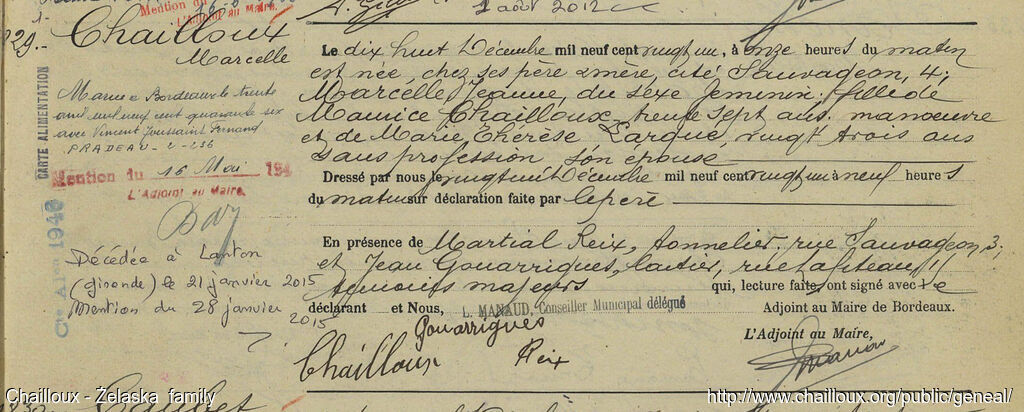 Mention du
L'Adjoint au Maire.
1 août 2012
829.-
Chailloux
Marcelle
CARTE ALIMENTATION
Mariée Bordeaux le trente
avril mil neuf cent quarante six
avec Vincent Toussaint Fernand
PRADEAU
Mention du 16 Mai 194
L'Adjoint au Maire.
Décédée à Lanton
(gironde) le 21 janvier 2015
Mention du 28 janvier
2015
Le dix huit Décembre mil neuf cent vingt un, à onze heures du matin
est née, chez ses père & mère, cité Sauvageon, 4,
Marcelle Jeanne, du sexe féminin; fille de
Maurice Chailloux, trente sept ans, manœuvre
et de Marie Thérèse Largue, vingt trois ans
sans profession, son épouse
Dressé par nous le vingt Décembre mil neuf cent vingt un à neuf heures
du matin sur déclaration faite par le père
En présence de Martial Reix, tonnelier, rue Sauvageon, 3;
et Jean Gouarrigues, laitier, rue Lafiteau, 11
témoins majeurs qui, lecture faite, ont signé avec le
déclarant et Nous, L. MANAUD, Conseiller Municipal délégué Adjoint au Maire de Bordeaux.
L'Adjoint au Maire,
Gouarrigues
Chailloux
Reix
Chailloux - Żelaska family
http://www.chailloux.org/public/geneal/